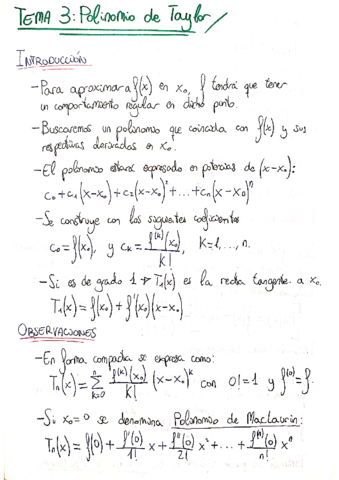 TEMA 3: Polinomio de Taylor
INTRODUCCIÓN
- Para aproximar a f(x) en x₀, f tendrá que tener
un comportamiento regular en dicho punto.
- Buscaremos un polinomio que coincida con f(x) y sus
respectivas derivadas en x₀.
- El polinomio estará expresado en potencias de (x-x₀):
c₀+c₁(x-x₀)+c₂(x-x₀)²+...+cₙ(x-x₀)ⁿ
- Se construye con los siguientes coeficientes
c₀=f(x₀), y cₖ=f⁽ᵏ⁾(x₀)/k!, k=1,...,n.
- Si es de grado 1 → T₁(x) es la recta tangente a x₀.
T₁(x)=f(x₀)+f'(x₀)(x-x₀)
OBSERVACIONES
- En forma compacta se expresa como:
Tₙ(x)=∑ₖ₌₀ⁿ f⁽ᵏ⁾(x₀)/k! (x-x₀)ᵏ con 0!=1 y f⁽⁰⁾=f.
- Si x₀=0 se denomina Polinomio de Maclaurin:
Tₙ(x)=f(0)+f'(0)/1! x+f''(0)/2! x²+...+f⁽ⁿ⁾(0)/n! xⁿ